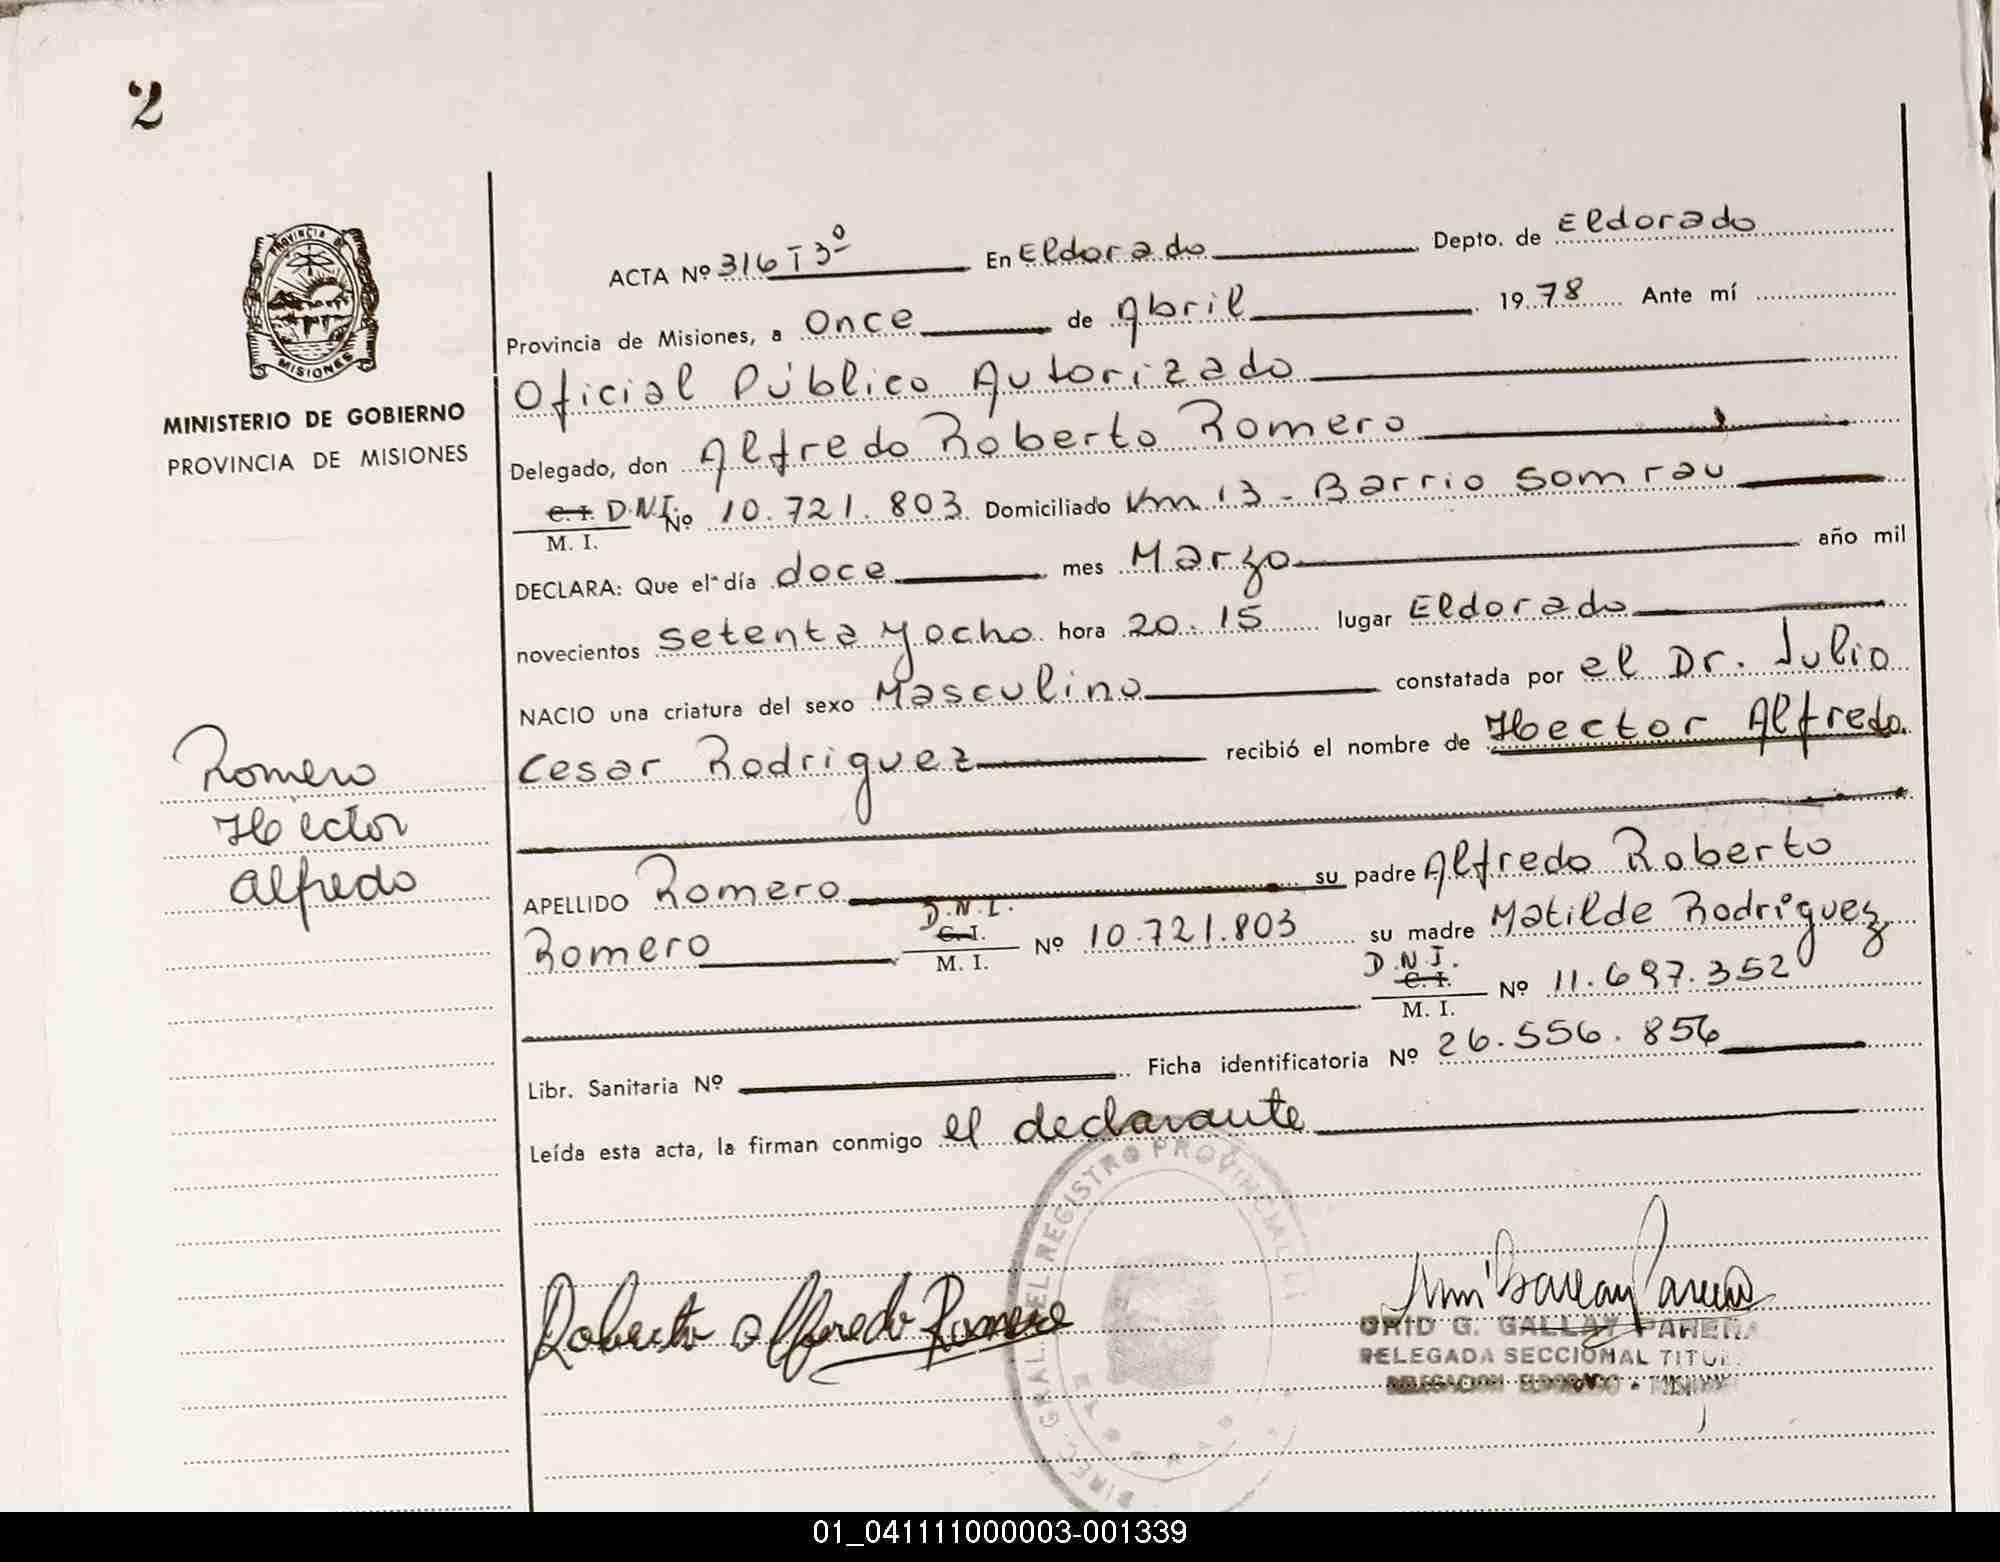 2
PROVINCIA DE
MISIONES
MINISTERIO DE GOBIERNO
PROVINCIA DE MISIONES
ACTA Nº 316 T 3º En Eldorado Depto. de Eldorado
Provincia de Misiones, a Once de Abril 1978 Ante mí
Oficial Público Autorizado
Delegado, don Alfredo Roberto Romero
C. I. D.N.I. Nº 10.721.803 Domiciliado Km 13 - Barrio Somrau
M. I.
DECLARA: Que el día doce mes Marzo año mil
novecientos setenta y ocho hora 20.15 lugar Eldorado
NACIO una criatura del sexo Masculino constatada por el Dr. Julio
Cesar Rodriguez recibió el nombre de Hector Alfredo
Romero
Hector
Alfredo
APELLIDO Romero su padre Alfredo Roberto
Romero D.N.I. C. I. M. I. Nº 10.721.803 su madre Matilde Rodriguez
D.N.I. C. I. M. I. Nº 11.697.352
Libr. Sanitaria Nº Ficha identificatoria Nº 26.556.856
Leída esta acta, la firman conmigo el declarante
DIREC. GRAL. DEL REGISTRO PROVINCIAL
Roberto Alfredo Romero
G. GALLAY PARERA
DELEGADA SECCIONAL
DELEGACION ELDORADO - MISIONES
01_041111000003-001339